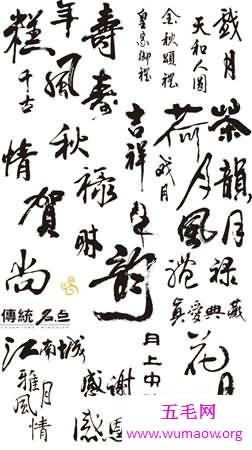 糕
年風
千古
壽
壽
金秋頌禮
皇家御禮
天和人圓
歲月
吉祥
荷月
歲月
茶韻
月
情
秋
祿
賀
年
風
月
尚
韵
禮
祿
真愛典藏
傳統名点
江南城
月上中
花月
雅風
月情
感謝
感恩
五毛网
www.wumaow.org